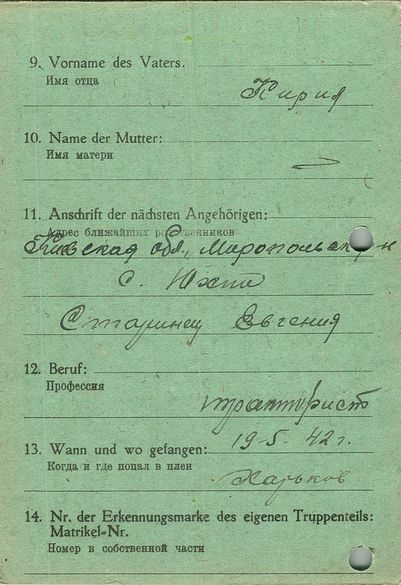 9. Vorname des Vaters.
Имя отца
Кирил
10. Name der Mutter:
Имя матери
11. Anschrift der nächsten Angehörigen:
Адрес ближайших родственников
Киевская Обл., Миропольск р-н
с. Юхти
Старинец Евгения
12. Beruf:
Профессия
тракторист
13. Wann und wo gefangen:
19-5-42 г.
Когда и где попал в плен
Харьков
14. Nr. der Erkennungsmarke des eigenen Truppenteils:
Matrikel-Nr.
Номер в собственной части